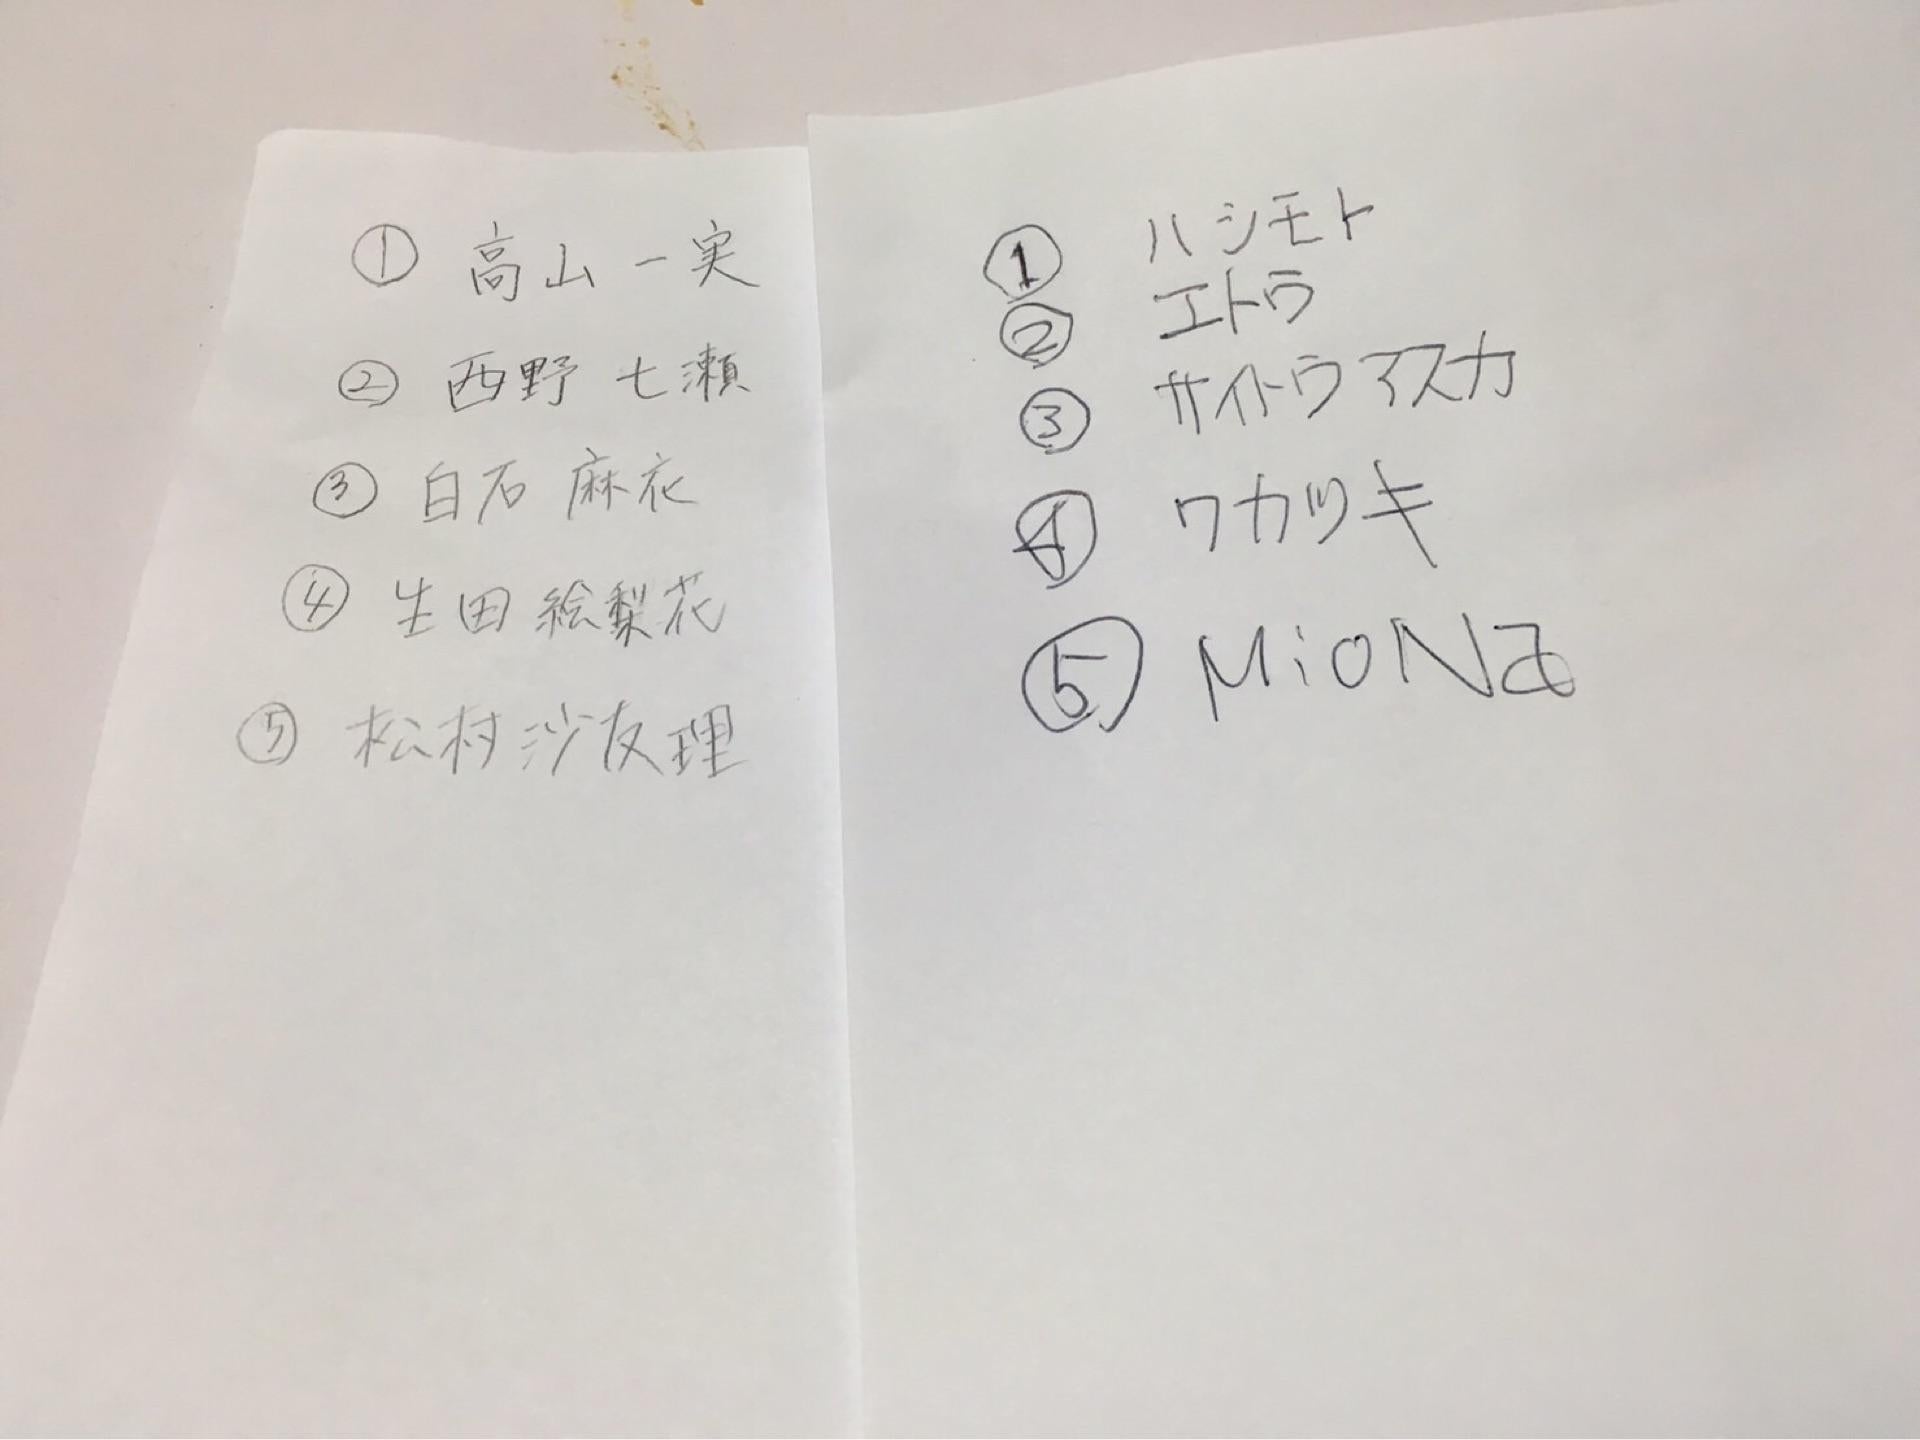 ① 高山 一実
② 西野 七瀬
③ 白石 麻衣
④ 生田 絵梨花
⑤ 松村 沙友理
① ハシモト
② エトウ
③ サイトウアスカ
④ ワカツキ
⑤ MioNa